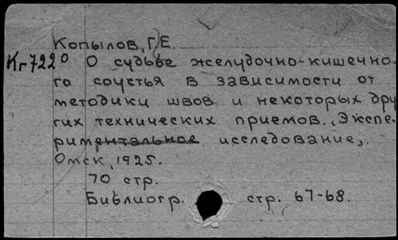 Копылов, Г.Е.
Кг7220 О судьбе желудочно-кишечно-
го соустья в зависимости от
методики швов и некоторых дру
гих технических приемов. Экспе-
риментальное исследование,
Омск, 1925.
70 стр.
Библиогр. стр. 67-68.